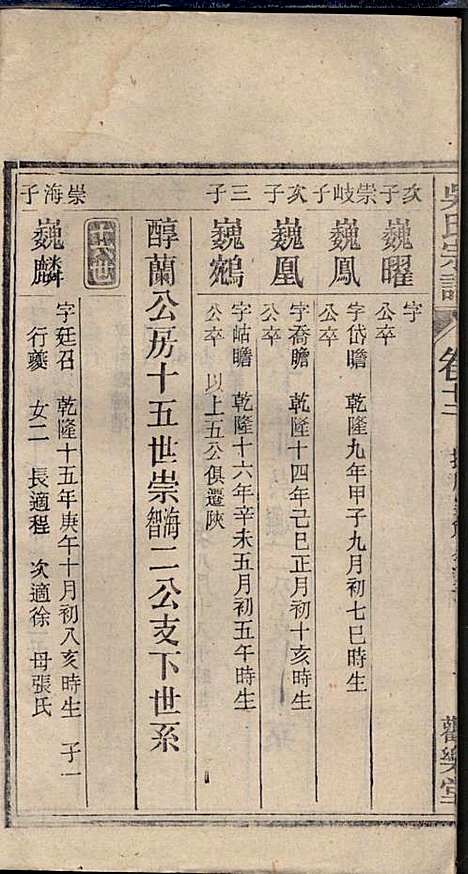 吳氏宗譜
卷十二
觀樂堂
次子
巍曜
字
公卒
崇岐子
巍鳳
字岱瞻 乾隆九年甲子九月初七巳時生
公卒
次子
巍凰
字喬瞻 乾隆十四年己巳正月初十亥時生
公卒
三子
巍鶴
字岵瞻 乾隆十六年辛未五月初五午時生
公卒 以上五公俱遷陝
醇蘭公房十五世崇海智二公支下世系
崇海子
巍麟
字廷召 乾隆十五年庚午十月初八亥時生 子一
行夔 女二 長適程 次適徐 母張氏